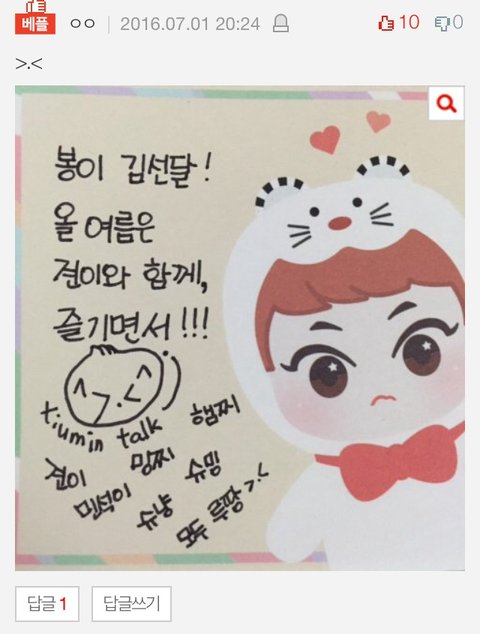 베플 ㅇㅇ 2016.07.01 20:24 10 0
>.<
봉이 김선달!
올 여름은
견이와 함께,
즐기면서!!!
xiumin talk 햄찌
견이 밍찌 슈밍
민석이 슈냥 모두 루팡 >.<
답글 1 답글쓰기